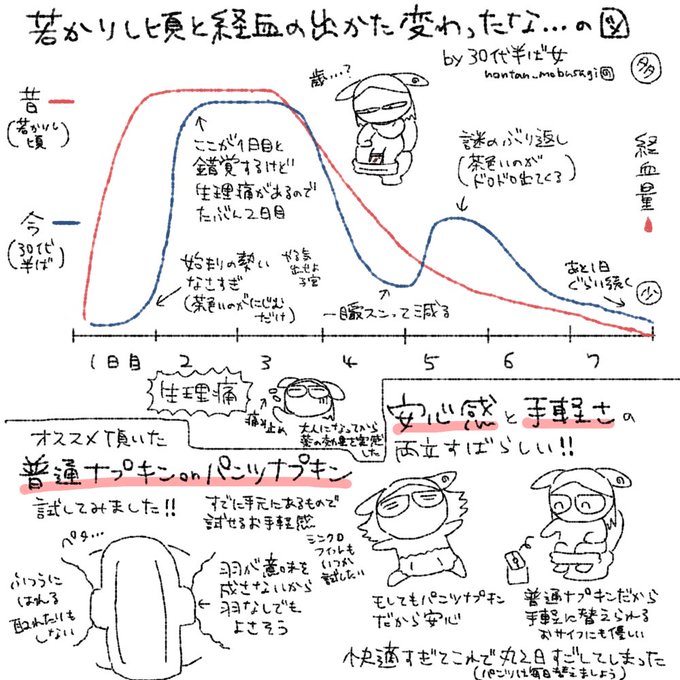 若かりし頃と経血の出かた変わったな…の図
by 30代半ば女
nontan_mobusagi
多
昔
(若かりし
頃)
今
(30代
半ば)
歳…?
ここが1日目と
錯覚するけど
生理痛があるので
たぶん2日目
謎のぶり返し
(茶色いのが
ドロドロ出てくる)
経血量
始まりの勢い
なさすぎ
(茶色いのがにじむ
だけ)
やる気
出せよ
子宮
一瞬スンって減る
あと1日
ぐらい続く
少
1日目
2
3
4
5
6
7
生理痛
痛み止め
大人になってから
薬の効果を実感
した
オススメ頂いた
普通ナプキンonパンツナプキン
試してみました!!
すでに手元にあるもので
試せるお手軽感
ペタ…
ふつうに
はれる
取れたりも
しない
羽が意味を
成さないから
羽なしでも
よさそう
安心感と手軽さの
両立すばらしい!!
シンクロ
フィットも
いつか
試したい
もしてもパンツナプキン
だから安心
普通ナプキンだから
手軽に替えられる
おサイフにも優しい
快適すぎてこれで丸2日すごしてしまった
(パンツは毎日替えましょう)